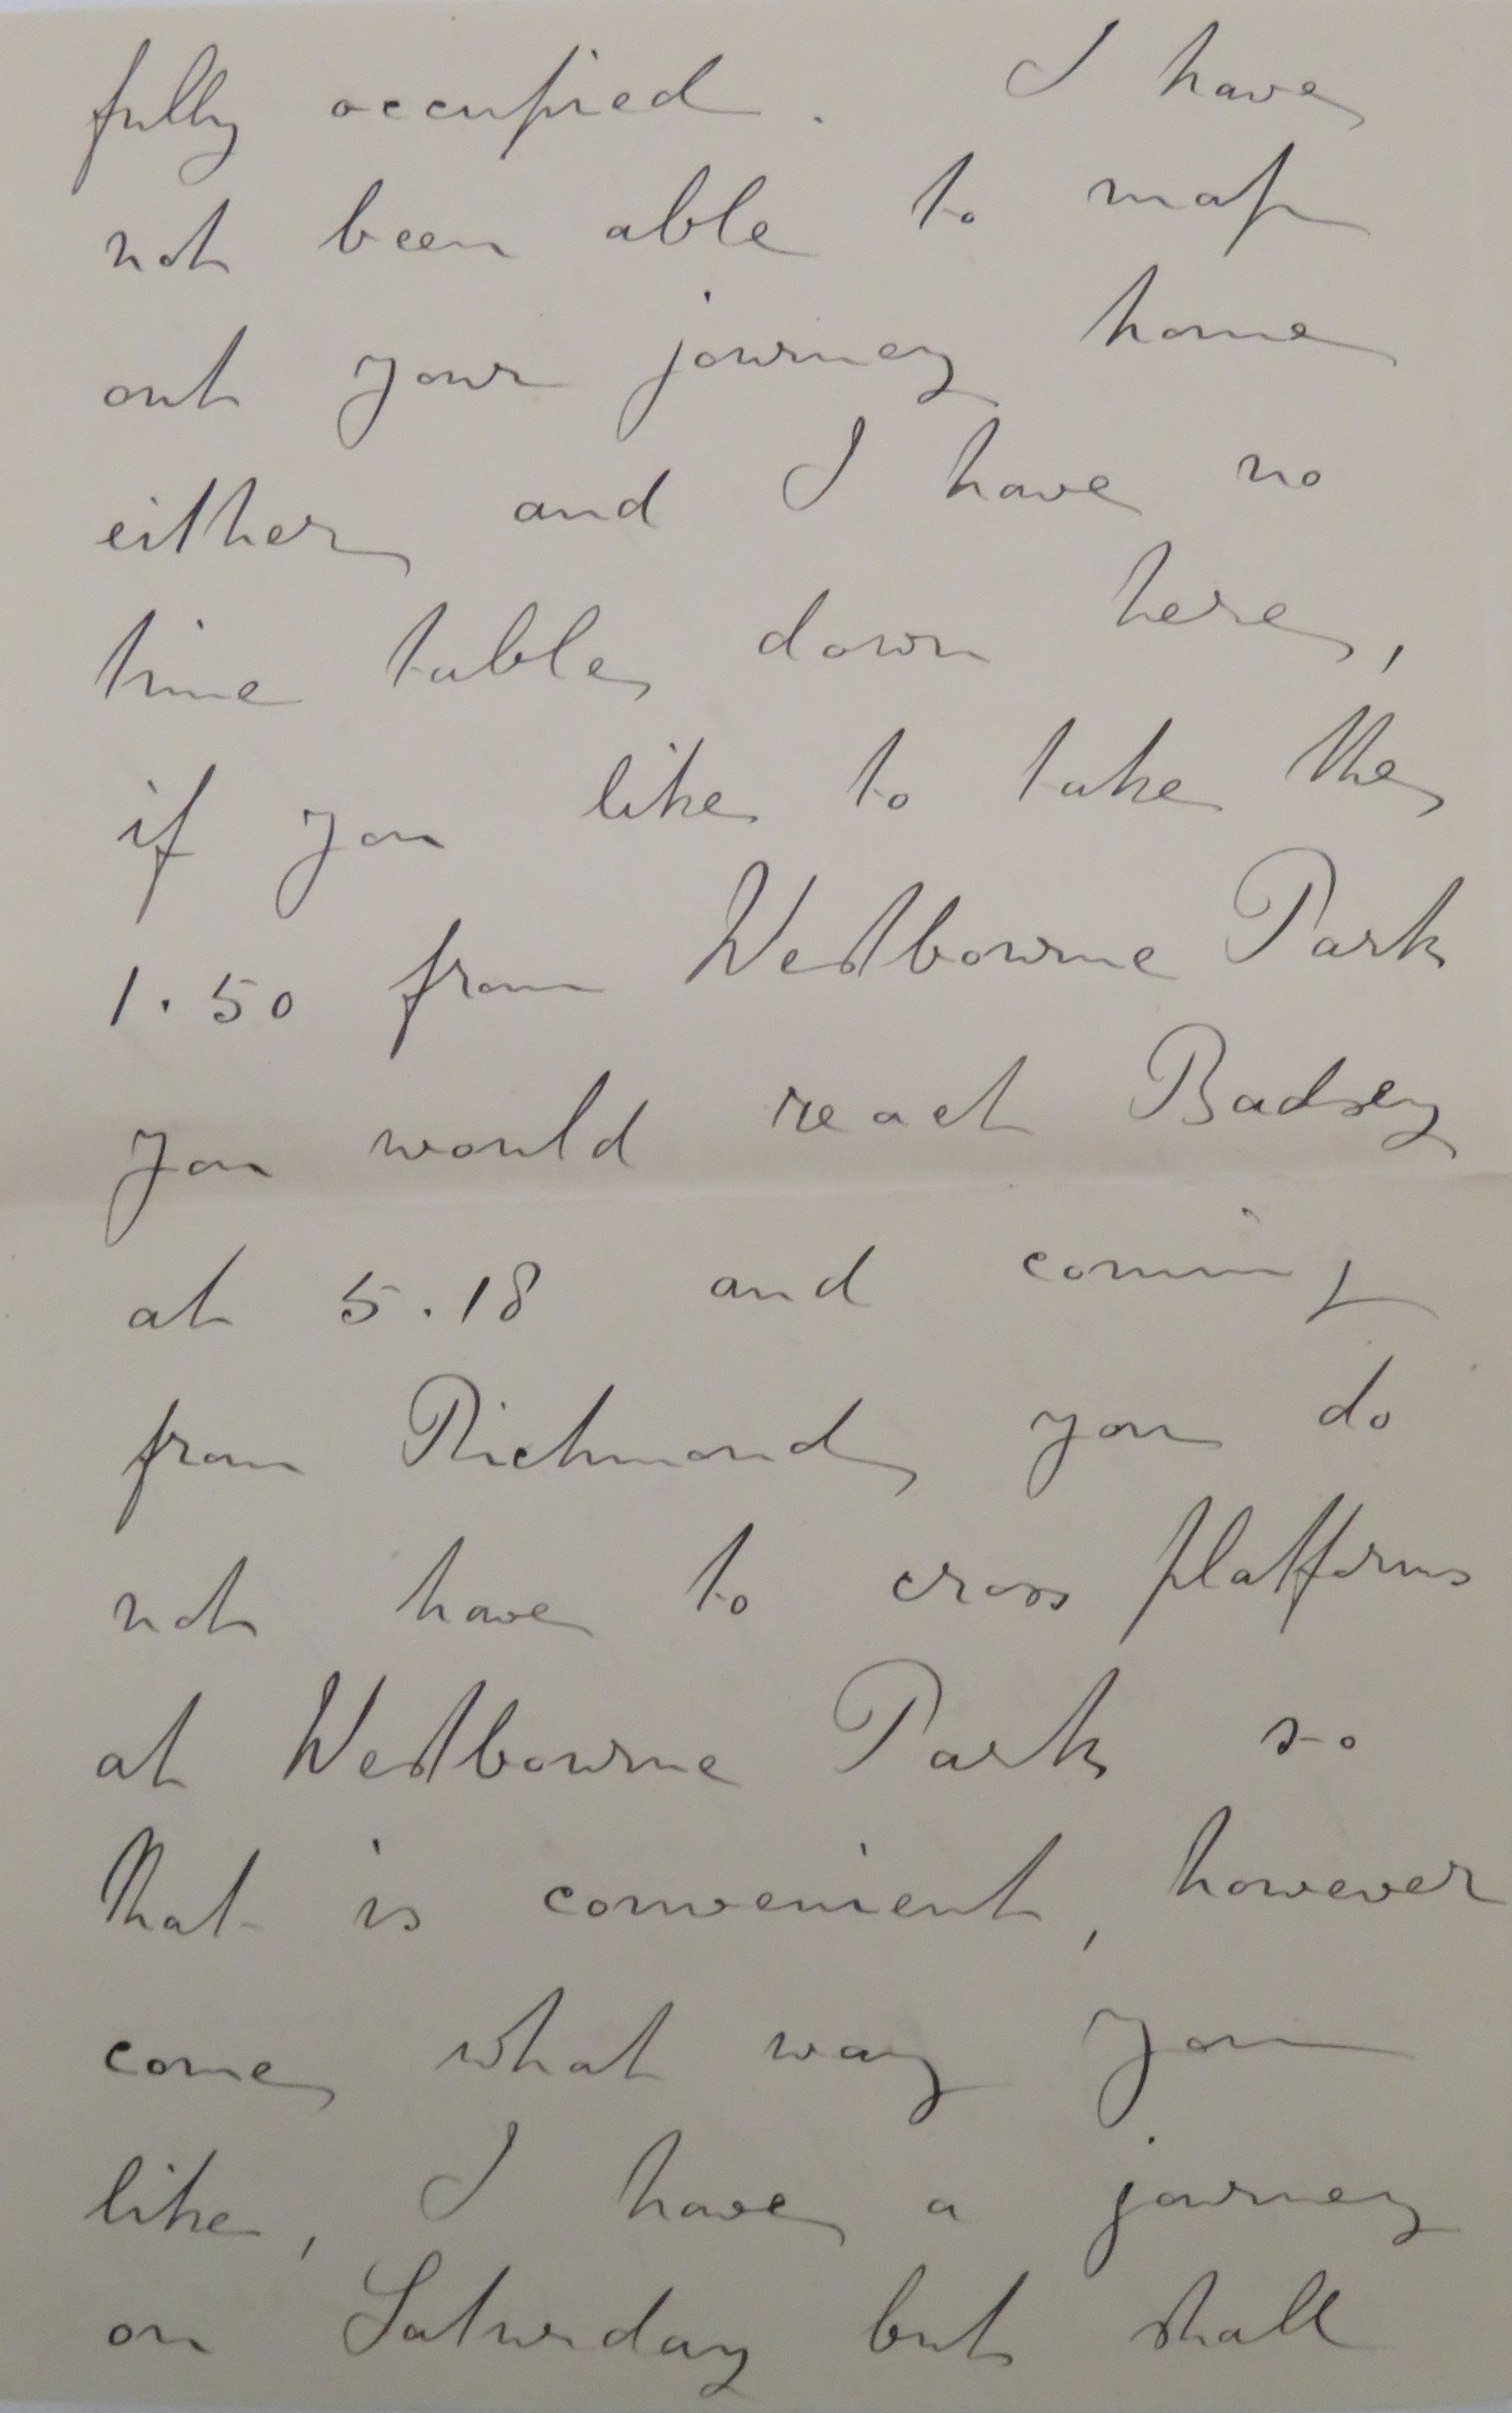 fully occupied. I have
not been able to map
out your journey home
either and I have no
time table down here,
if you like to take the
1.50 from Westbourne Park
you would reach Badsey
at 5.18 and coming
from Richmond you do
not have to cross platforms
at Westbourne Park so
that is convenient, however
come what way you
like, I have a journey
on Saturday but shall